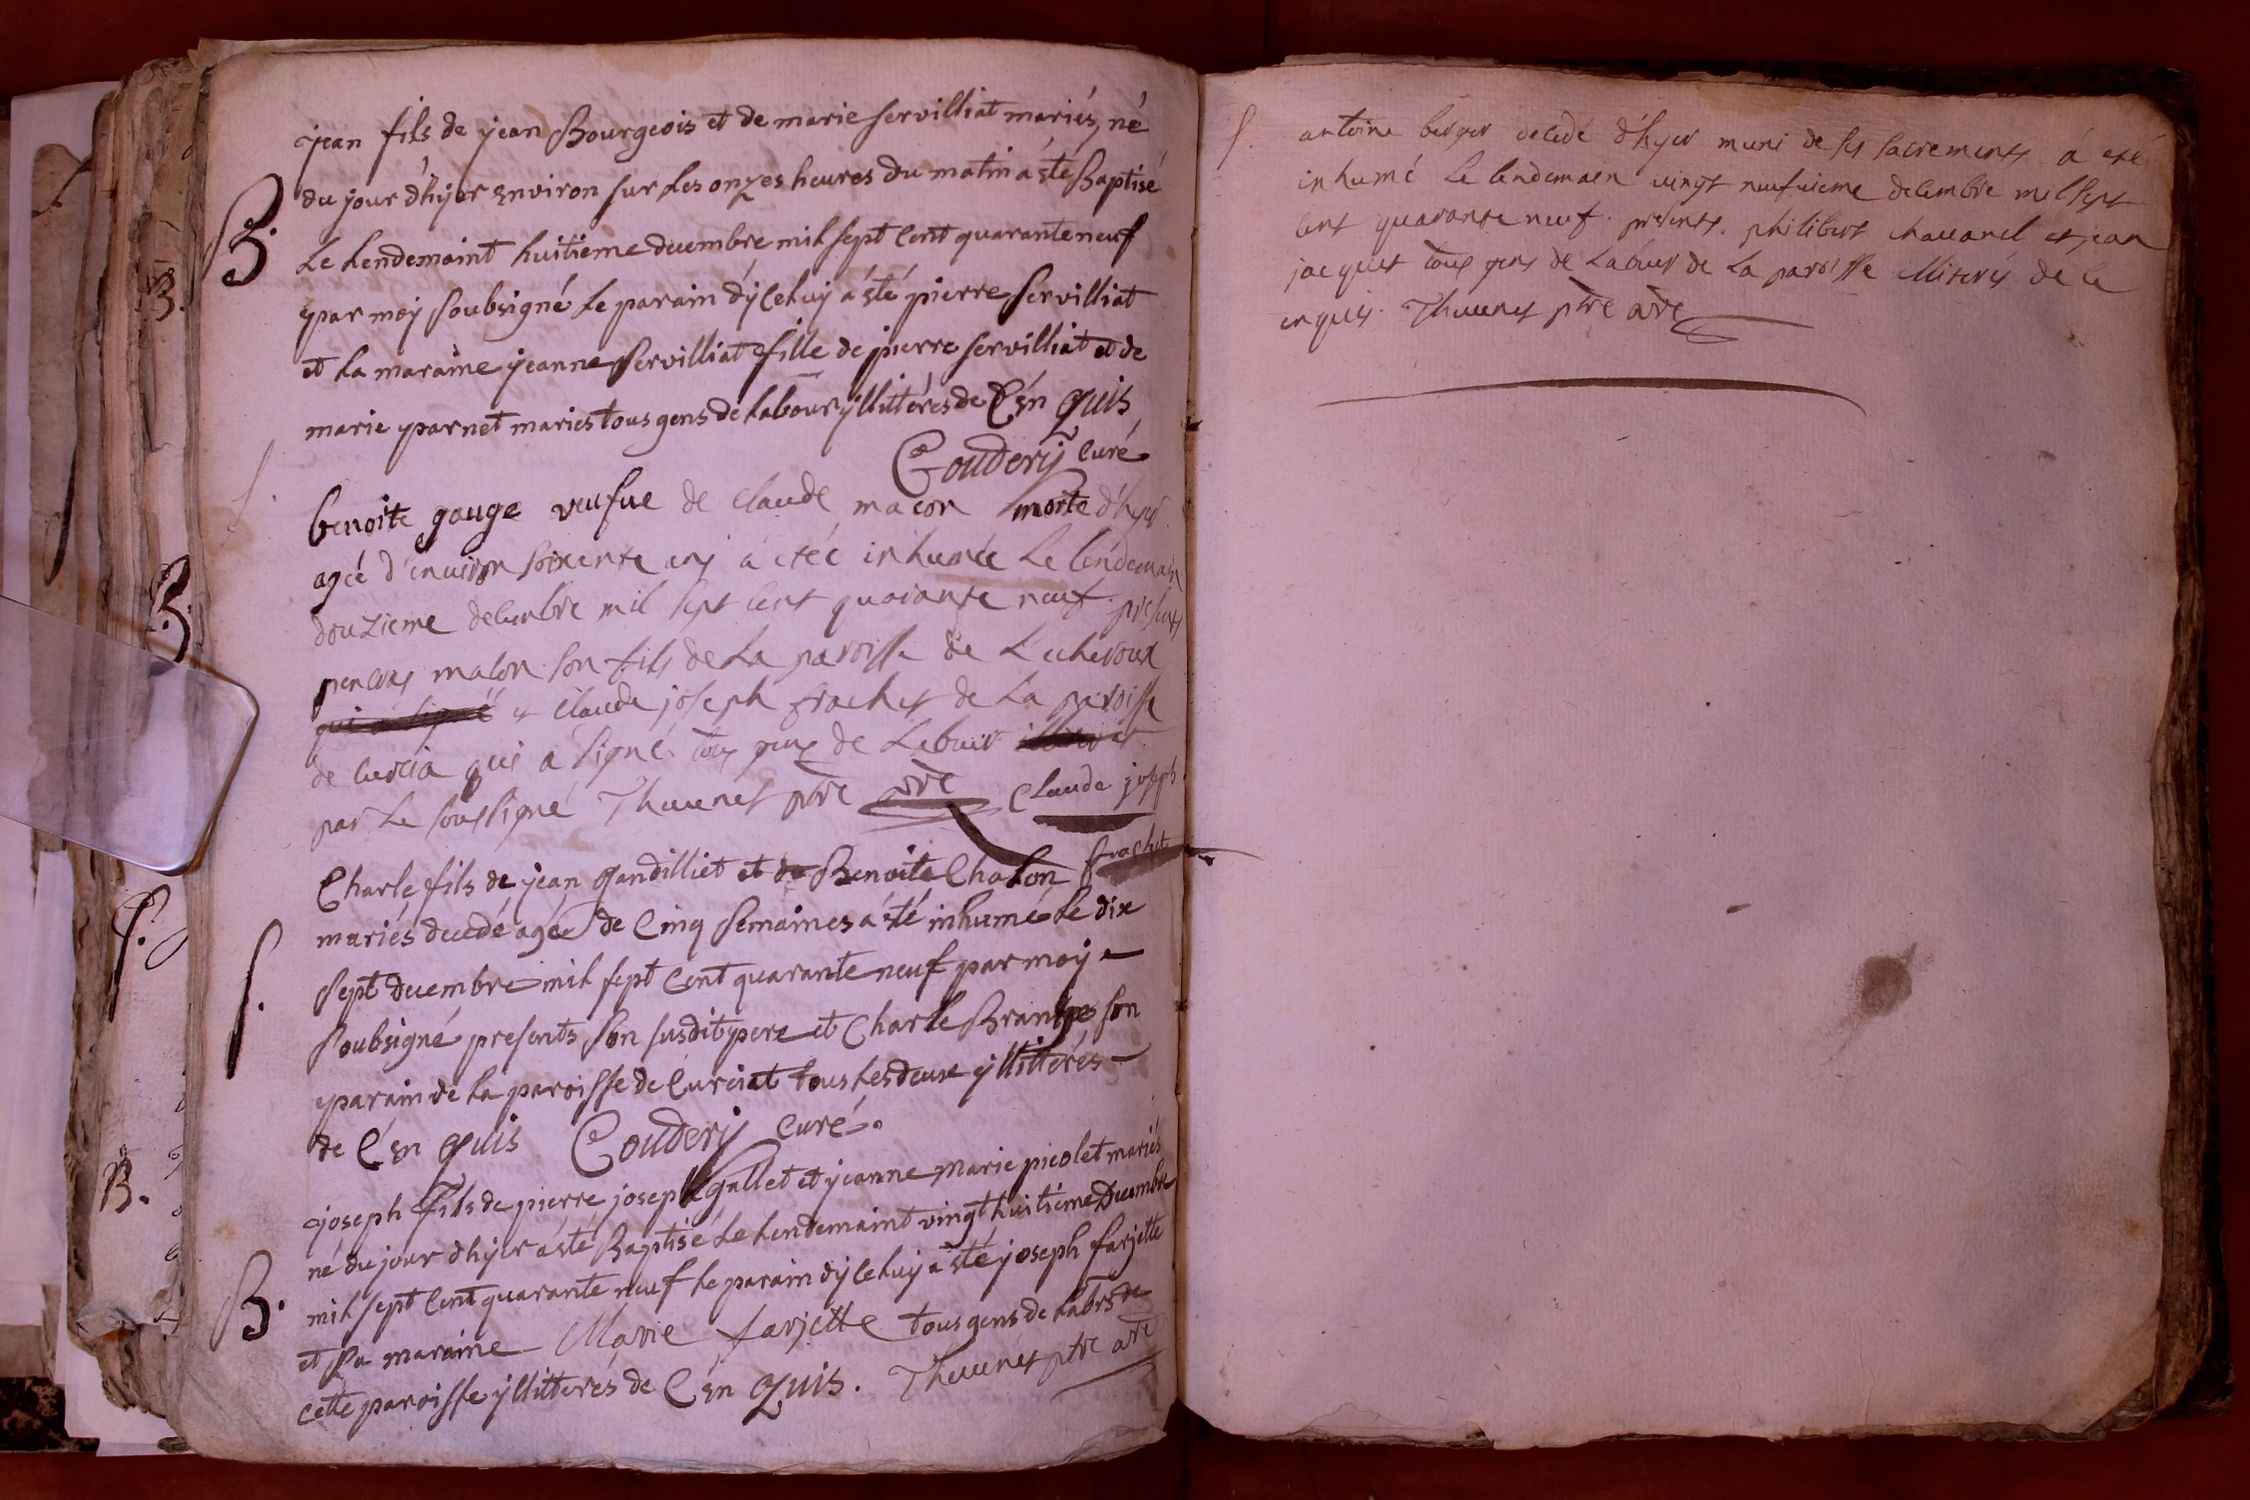 jean fils de jean Bourgeois et de marie servilliat mariés, né
B. du jour d'hÿer environ sur les onzes heures du matin a été Baptisé
Le Lendemaint huitieme decembre mil sept Cent quarante neuf
par moÿ soubsigné Le parain d'ÿCeluÿ a été pierre servilliat
et La maraine jeanne servilliat fille de pierre servilliat et de
marie parnet mariés tous gens de Labour ÿllittérés de C'en quis
Couderÿ Curé
S. benoite gauge veufve de Claude macon morte d'hyer
agéé d'environ soixente ans a etéé inhumée Le lendemain
douzieme decembre mil sept cent quarante neuf. presents
macon son fils de La paroisse de Lecheroux
qui a signé et Claude joseph frachet de La paroisse
de curcia qui a signé tous gens de Labeur
par Le soussigné Thevenet ptre vre Claude joseph
frachet
Charle fils de jean Gandilliet et de Benoite Chalon
S. mariés decedé agé de Cinq semaines a été inhumé Le dix
sept decembre mil sept Cent quarante neuf par moÿ
soubsigné presents son susdit pere et Charle son
parain de La paroisse de Curciat tous Les deux ÿllitterés
de C'en quis Couderÿ Curé.
joseph fils de pierre joseph gallet et jeanne marie picolet mariés
né du jour d'hÿer a été Baptisé Le Lendemaint vingt huitiéme Decembre
B. mil sept Cent quarante neuf Le parain d'ÿCeluÿ a été joseph farjette
et sa maraine Marie farjette tous gens de Labr de
cette paroisse ÿllitterés de C'en quis. Thevenet ptre vre
S. antoine berger decedé d'hyer muni de ses sacrements a eté
inhumé Le lendemain vingt neufvieme decembre mil sept
cent quarante neuf. presents. philibert chavanel et jean
jacquet tous gens de Labeur de La paroisse illiterés de ce
enquis. Thevenet ptre vre